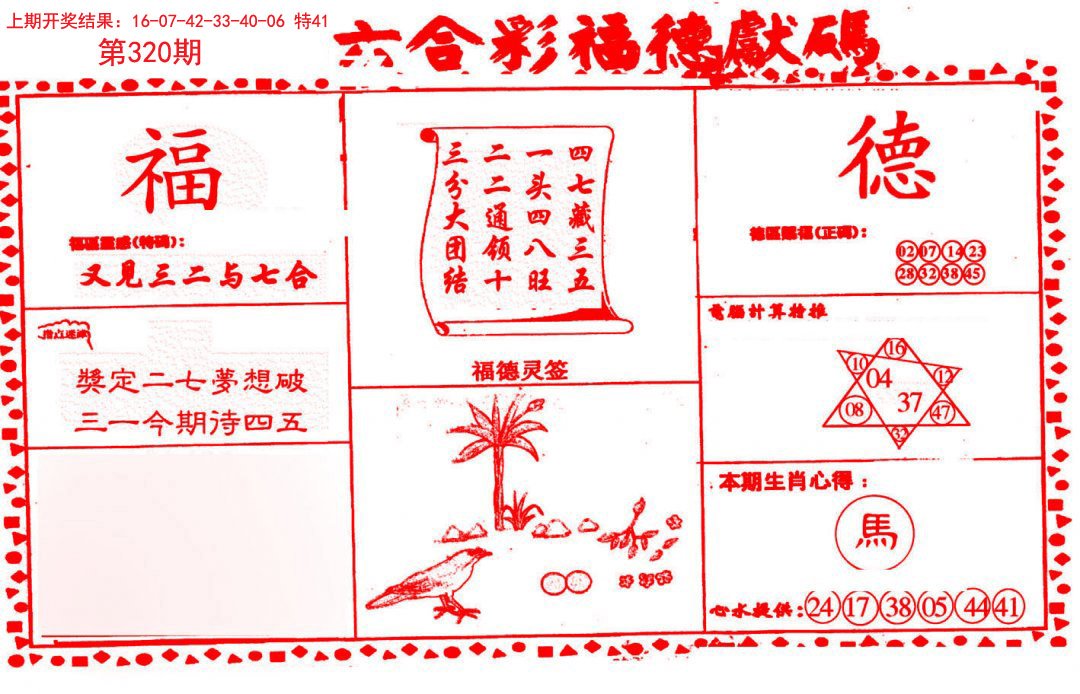 上期开奖结果：16-07-42-33-40-06 特41
第320期
六合彩福德獻碼
福
福區靈感(特碼)：
又見三二与七合
指点迷津
獎定二七夢想破
三一今期待四五
四七藏三五
一头四八旺
二二通领十
三分大团结
福德灵签
德
德區賜福(正碼)：
02 07 14 23
28 32 38 45
電腦計算特推
16
10 12
04
37
08 47
32
本期生肖心得：
馬
心水提供：24 17 38 05 44 41